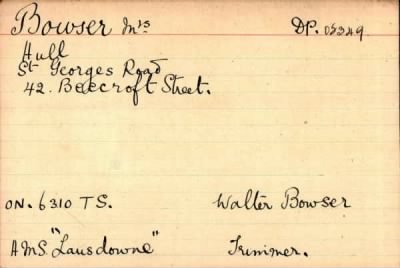 Bowser Mrs DP. 05349
Hull
St Georges Road
42. Beecroft Street.
ON. 6310 TS. Walter Bowser
AMS "Lansdowne" Trimmer.